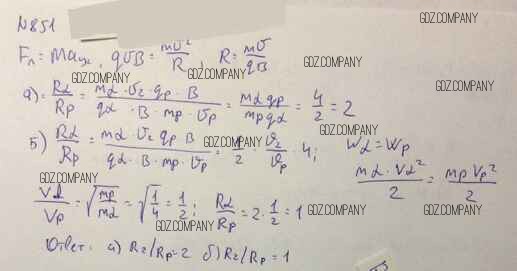 N851
GDZ.COMPANY
Fл = maцс, qVB = mV²/R, R = mV/qB
GDZ.COMPANY
GDZ.COMPANY
GDZ.COMPANY
а) = Rα/Rp = mα · Vα · qp · B / qα · B · mp · Vp = mα qp / mp qα = 4/2 = 2
GDZ.COMPANY
GDZ.COMPANY
б) Rα/Rp = mα · Vα qp B / qα · B · mp · Vp = 1/2 · Vα/Vp · 4; Wα = Wp
GDZ.COMPANY
mα · Vα²/2 = mp Vp²/2
GDZ.COMPANY
Vα/Vp = √mp/mα = √1/4 = 1/2; Rα/Rp = 2 · 1/2 = 1
GDZ.COMPANY
GDZ.COMPANY
GDZ.COMPANY
Ответ: а) Rα/Rp = 2 б) Rα/Rp = 1